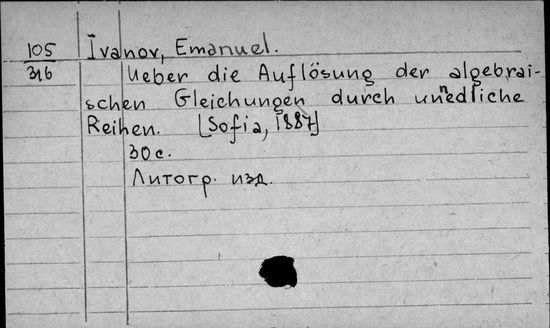 105 Ivanov, Emanuel.
316 Ueber die Auflösung der algebrai-
schen Gleichungen durch unnedliche
Reihen. [Sofia, 1887]
30 c.
Литогр. изд.